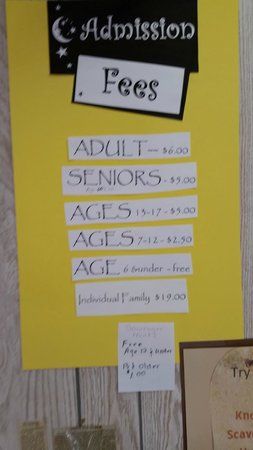 Admission
Fees
ADULT - $6.00
SENIORS - $5.00
AGES 13-17 - $5.00
AGES 7-12 - $2.50
AGE 6 & under - free
Individual Family $19.00
Scavenger
Hunt
Free
Age 12 & Under
Older
$1.00
Try
Kno
Scav